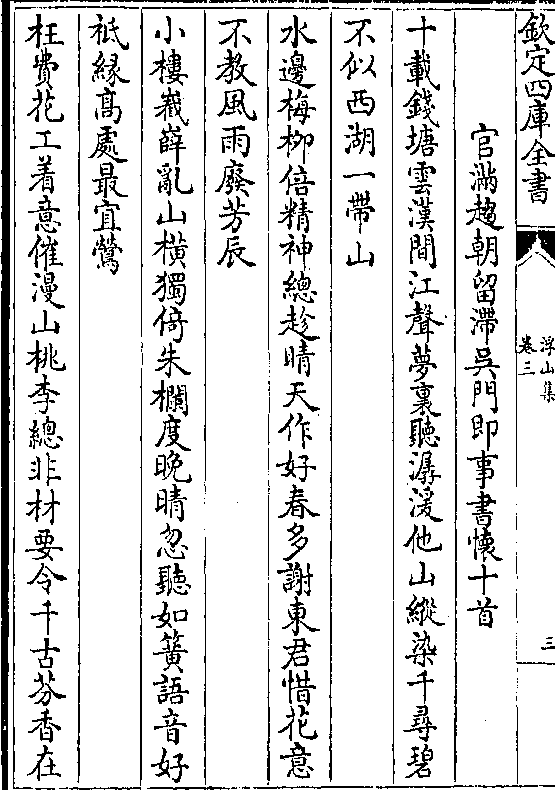 欽定四庫全書
浮山集
卷三
三
官滿趨朝留滯吳門即事書懷十首
十載錢塘雲漢間江聲夢裏聽潺湲他山縱染千尋碧
不似西湖一帶山
水邊梅柳倍精神總趁晴天作好春多謝東君惜花意
不教風雨廢芳辰
小樓嶻嶭亂山橫獨倚朱欄度晚晴忽聽如簧語音好
祗緣髙處最宜鶯
枉費花工着意催漫山桃李總非材要令千古芬香在